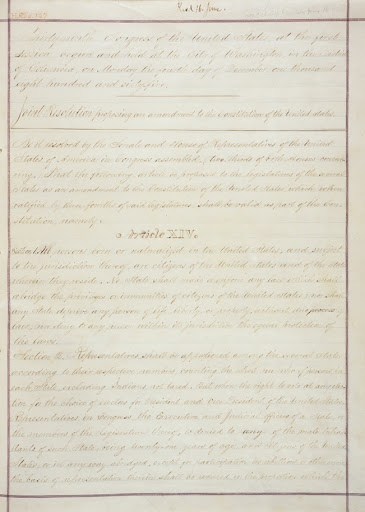 Recd 16 June
Thirty-ninth Congress of the United States, at the first
Session, begun and held at the City of Washington, in the District
of Columbia, on Monday the fourth day of December one thousand
eight hundred and sixty-five.
Joint Resolution proposing an amendment to the Constitution of the United States.
Be it resolved by the Senate and House of Representatives of the United
States of America in Congress assembled, (two thirds of both Houses concur-
ring,) That the following article be proposed to the legislatures of the several
States as an amendment to the Constitution of the United States, which, when
ratified by three fourths of said legislatures, shall be valid as part of the Con-
stitution, namely:
Article XIV.
Section 1. All persons born or naturalized in the United States, and subject
to the jurisdiction thereof, are citizens of the United States and of the State
wherein they reside. No State shall make or enforce any law which shall
abridge the privileges or immunities of citizens of the United States; nor shall
any State deprive any person of life, liberty, or property, without due process of
law, nor deny to any person within its jurisdiction the equal protection of
the laws.
Section 2. Representatives shall be apportioned among the several States
according to their respective numbers, counting the whole number of persons in
each State, excluding Indians not taxed. But when the right to vote at any election
for the choice of electors for President and Vice President of the United States,
Representatives in Congress, the Executive and Judicial officers of a State, or
the members of the Legislature thereof, is denied to any of the male inhabi-
tants of such State, being twenty-one years of age, and citizens of the United
States, or in any way abridged, except for participation in rebellion or other crime,
the basis of representation therein shall be reduced in the proportion which the